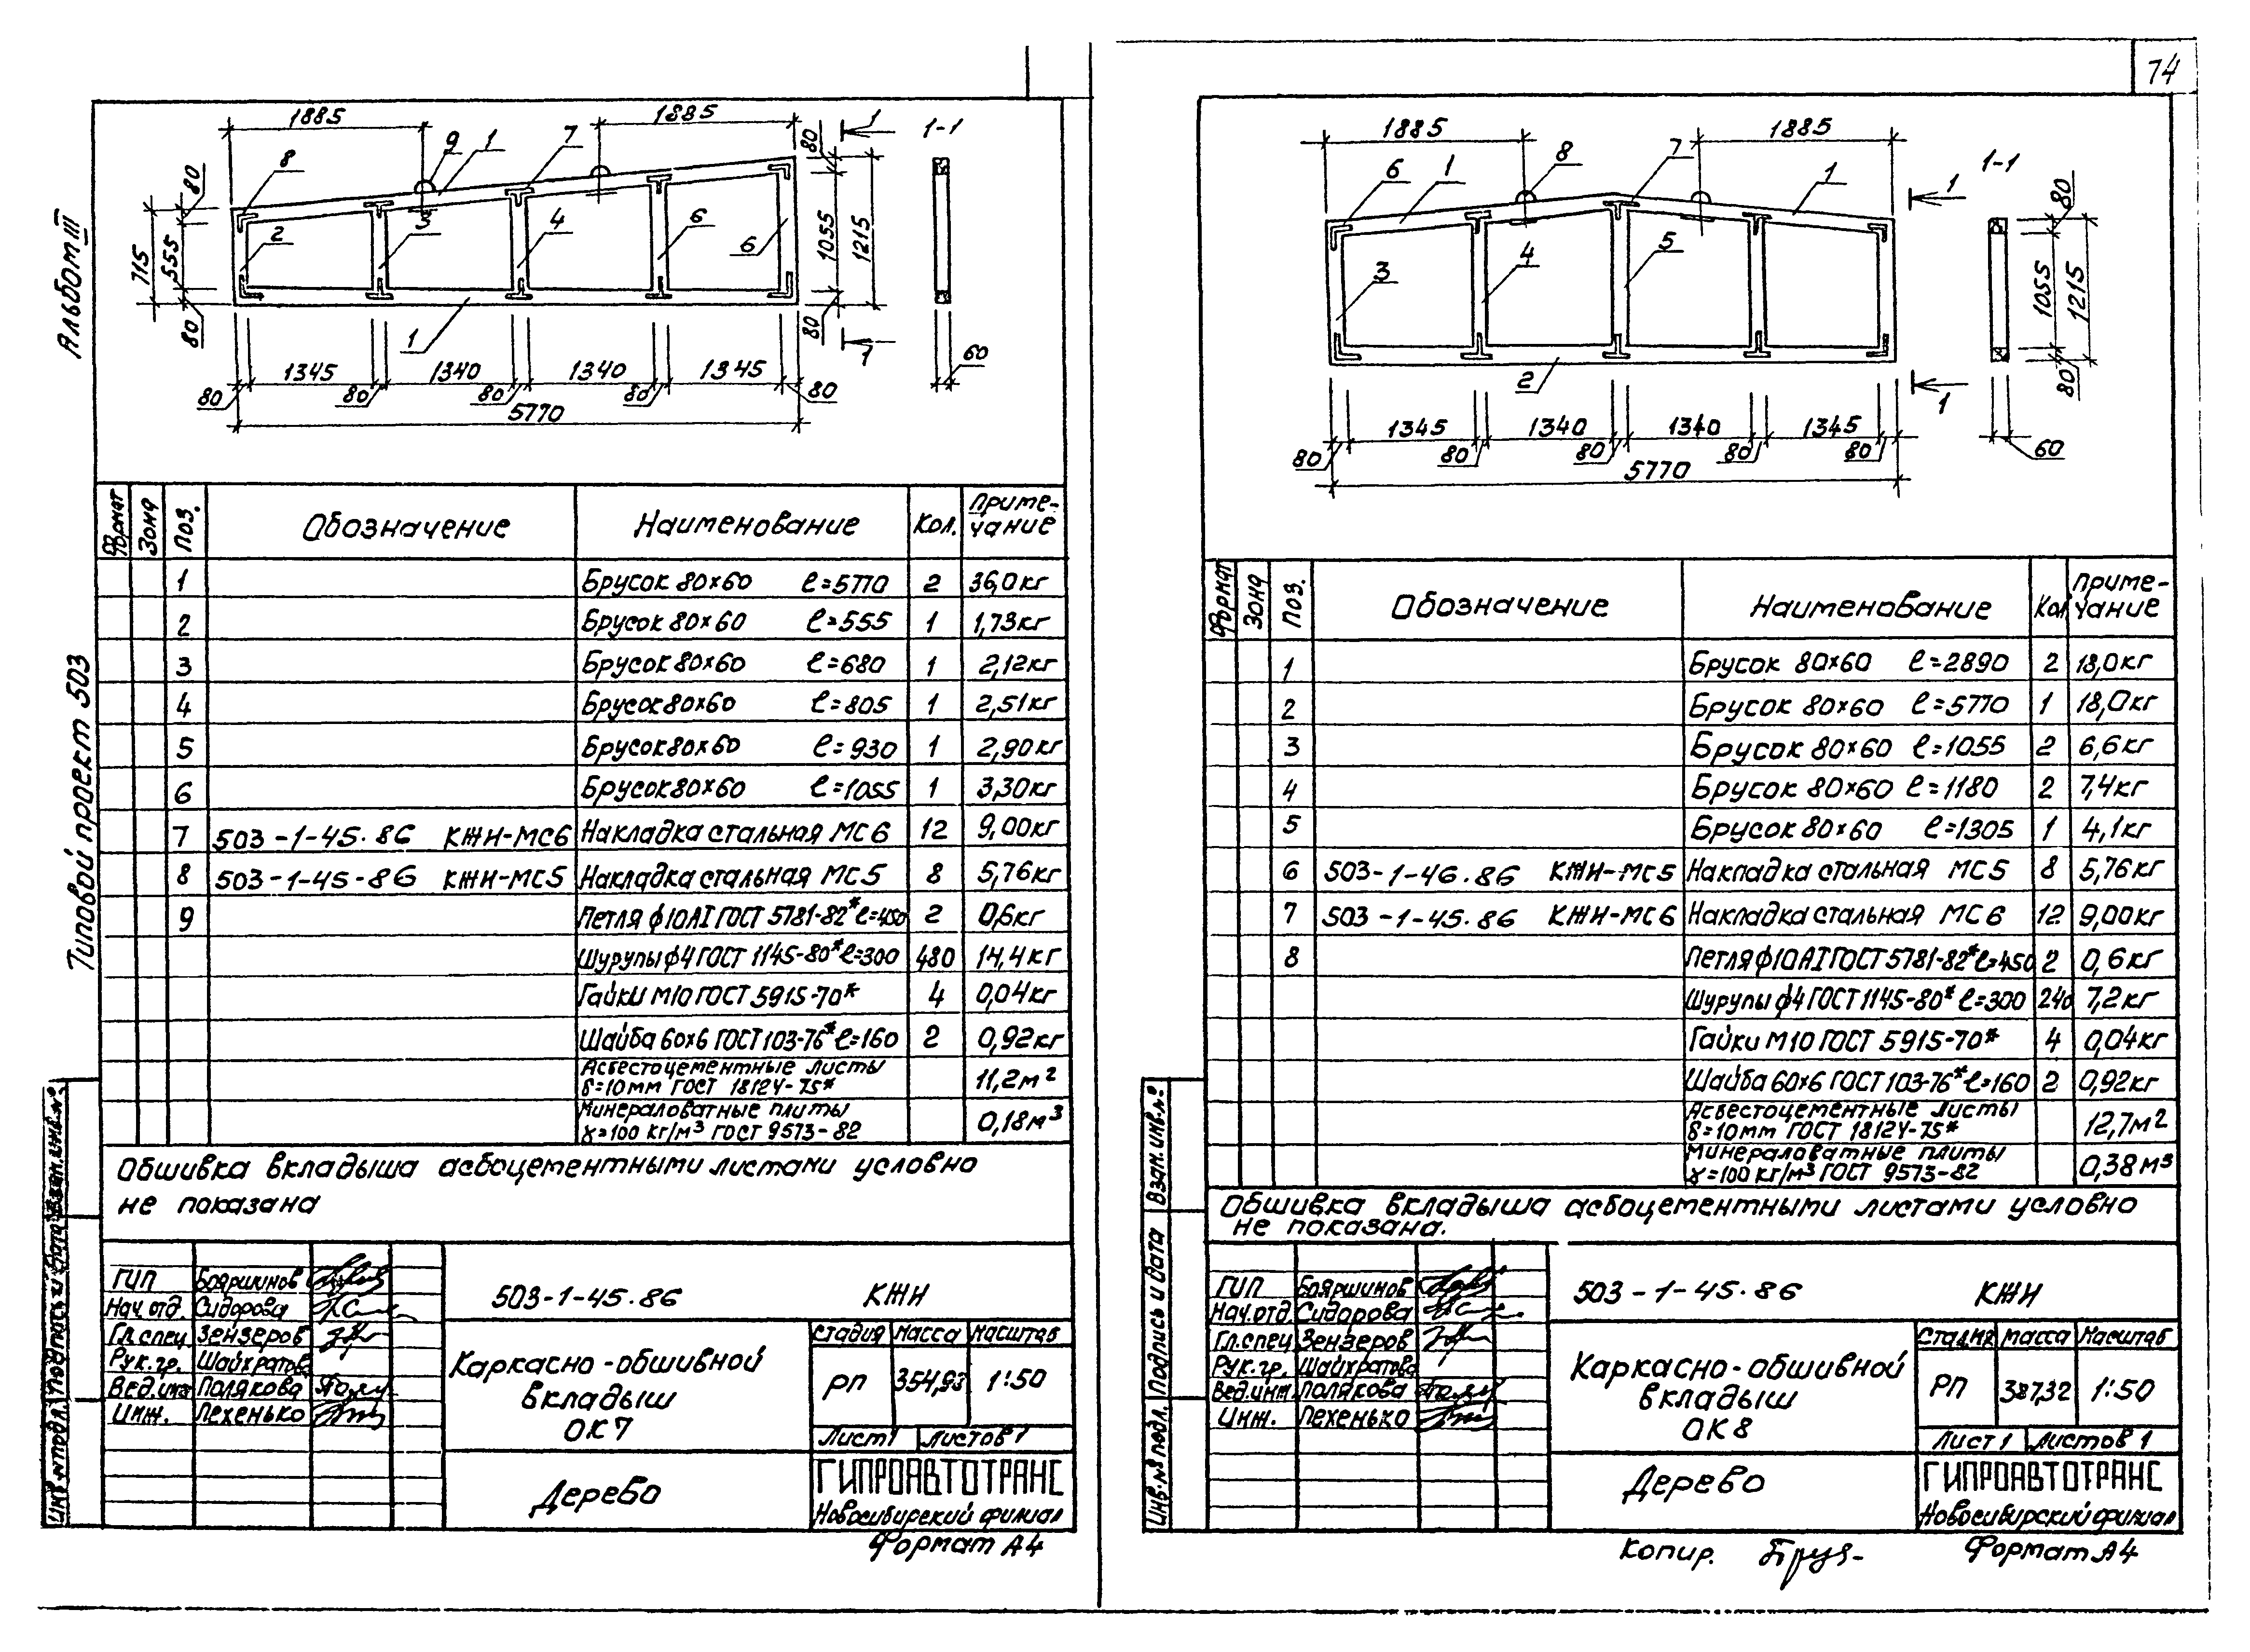 74
Альбом III
Типовой проект 503
1885
1885
9
1
7
8
80
80
1
1-1
715
555
80
2
3
4
6
6
1055
1215
80
1
1
60
1345
1340
1340
1345
80
80
80
80
80
5770
Формат Зона Поз. Обозначение Наименование Кол. Примечание
1 Брусок 80×60 ℓ=5770 2 36,0кг
2 Брусок 80×60 ℓ=555 1 1,73кг
3 Брусок 80×60 ℓ=680 1 2,12кг
4 Брусок 80×60 ℓ=805 1 2,51кг
5 Брусок 80×60 ℓ=930 1 2,90кг
6 Брусок 80×60 ℓ=1055 1 3,30кг
7 503-1-45.86 КЖИ-МС6 Накладка стальная МС6 12 9,00кг
8 503-1-45-86 КЖИ-МС5 Накладка стальная МС5 8 5,76кг
9 Петля ф10АI ГОСТ 5781-82* ℓ=450 2 0,6кг
Шурупы ф4 ГОСТ 1145-80* ℓ=300 480 14,4кг
Гайки М10 ГОСТ 5915-70* 4 0,04кг
Шайба 60х6 ГОСТ 103-76* ℓ=160 2 0,92кг
Асбестоцементные листы
δ=10мм ГОСТ 18124-75* 11,2м²
Минераловатные плиты
γ=100 кг/м³ ГОСТ 9573-82 0,18м³
Обшивка вкладыша асбоцементными листами условно
не показана
ГИП Бояршинов
Нач.отд. Сидорова
Гл.спец Зензеров
Рук.гр. Шайхратова
Вед.инж Полякова
Инж. Пехенько
503-1-45.86 КЖИ
Каркасно-обшивной
вкладыш
ОК7
Стадия Масса Масштаб
РП 354,93 1:50
Лист 1 Листов 1
Дерево
ГИПРОАВТОТРАНС
Новосибирский филиал
Формат А4
Инв.№ подл. Подпись и дата Взам.инв.№
1885
1885
6
1
8
7
1
1
1-1
80
3
4
5
1055
1215
2
80
1
60
1345
1340
1340
1345
80
80
80
80
80
5770
Формат Зона Поз. Обозначение Наименование Кол Примечание
1 Брусок 80×60 ℓ=2890 2 18,0кг
2 Брусок 80×60 ℓ=5770 1 18,0кг
3 Брусок 80×60 ℓ=1055 2 6,6кг
4 Брусок 80×60 ℓ=1180 2 7,4кг
5 Брусок 80×60 ℓ=1305 1 4,1кг
6 503-1-46.86 КЖИ-МС5 Накладка стальная МС5 8 5,76кг
7 503-1-45.86 КЖИ-МС6 Накладка стальная МС6 12 9,00кг
8 Петля ф10АI ГОСТ 5781-82* ℓ=450 2 0,6кг
Шурупы ф4 ГОСТ 1145-80* ℓ=300 240 7,2кг
Гайки М10 ГОСТ 5915-70* 4 0,04кг
Шайба 60х6 ГОСТ 103-76* ℓ=160 2 0,92кг
Асбестоцементные листы
δ=10мм ГОСТ 18124-75* 12,7м²
Минераловатные плиты
γ=100 кг/м³ ГОСТ 9573-82 0,38м³
Обшивка вкладыша асбоцементными листами условно
не показана.
ГИП Бояршинов
Нач.отд. Сидорова
Гл.спец Зензеров
Рук.гр. Шайхратова
Вед.инж. Полякова
Инж. Пехенько
503-1-45.86 КЖИ
Каркасно-обшивной
вкладыш
ОК8
Стадия Масса Масштаб
РП 387,32 1:50
Лист 1 Листов 1
Дерево
ГИПРОАВТОТРАНС
Новосибирский филиал
Копир. Формат А4
Инв.№ подл. Подпись и дата Взам.инв.№